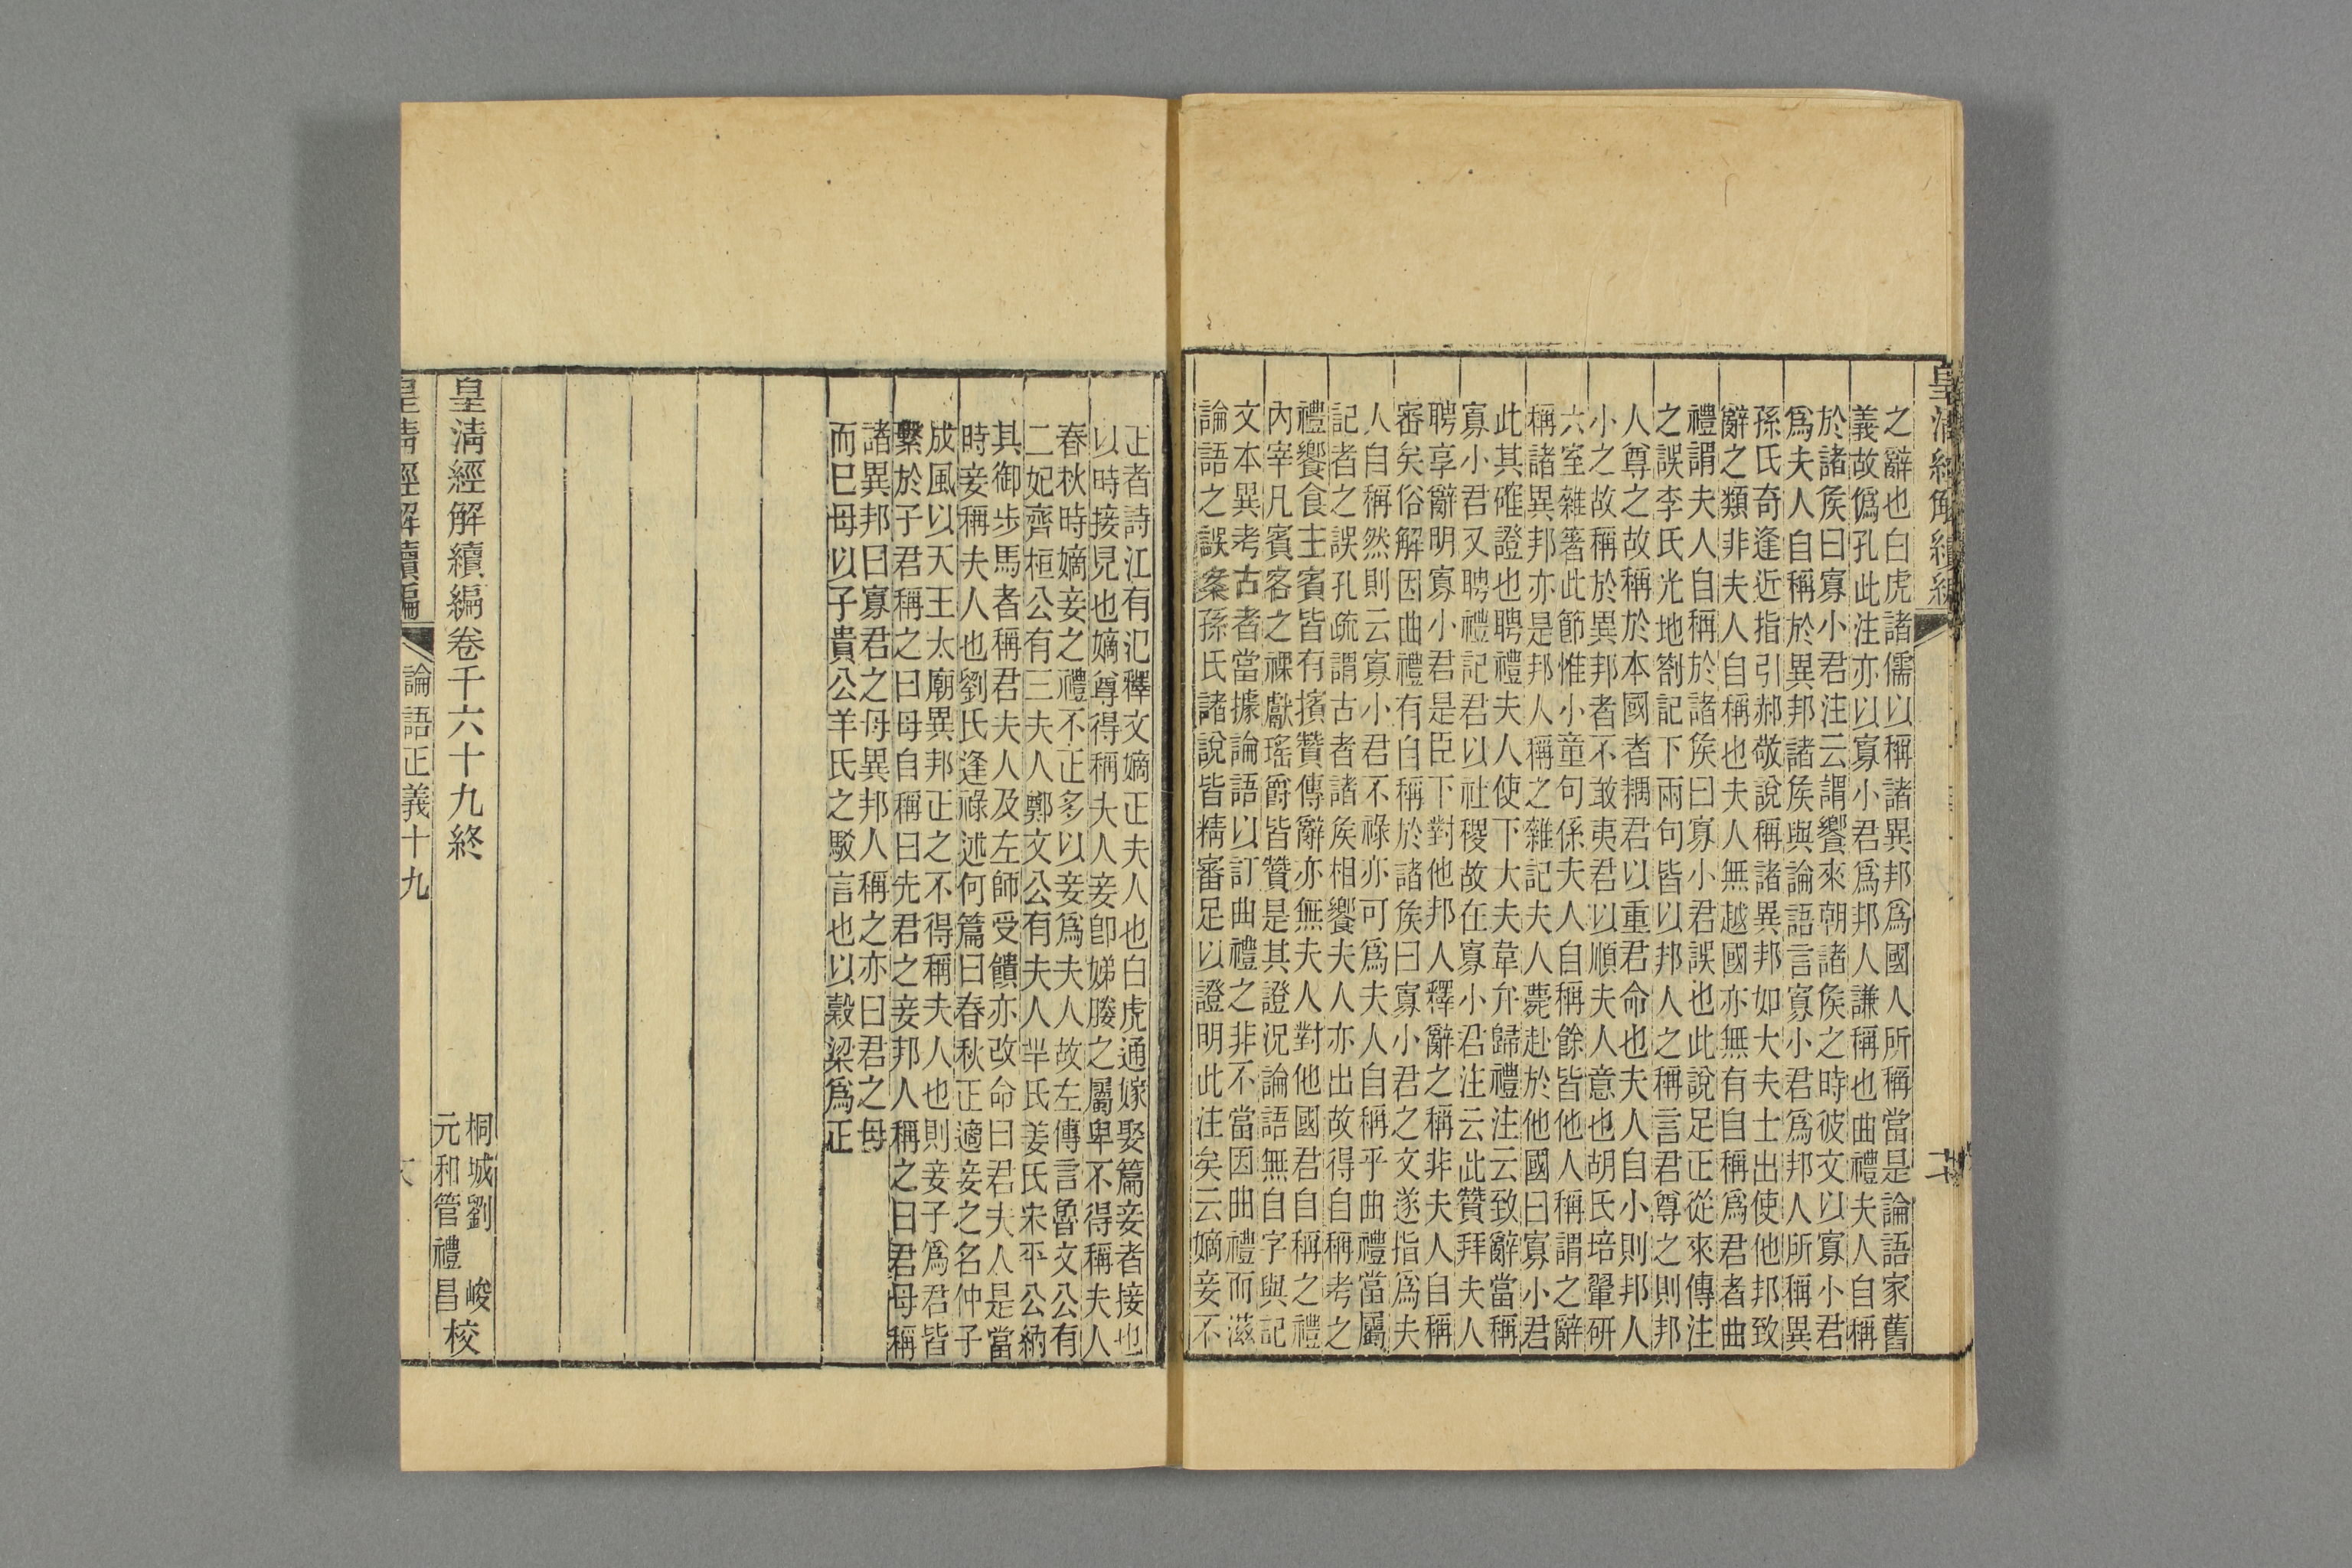 皇清經解續編
二十
之辭也白虎諸儒以稱諸異邦爲國人所稱當是論語家舊
義故僞孔此注亦以寡小君爲邦人謙稱也曲禮夫人自稱
於諸矦曰寡小君注云謂饗來朝諸矦之時彼文以寡小君
爲夫人自稱於異邦諸矦與論語言寡小君爲邦人所稱異
孫氏奇逢近指引郝敬說稱諸異邦如大夫士出使他邦致
辭之類非夫人自稱也夫人無越國亦無有自稱爲君者曲
禮謂夫人自稱於諸矦曰寡小君誤也此說足正從來傳注
之誤李氏光地劄記下兩句皆以邦人之稱言君尊之則邦
人尊之故稱於本國者耦君以重君命也夫人自小則邦人
小之故稱於異邦者不敢夷君以順夫人意也胡氏培翬研
六室雜箸此節惟小童句係夫人自稱餘皆他人稱謂之辭
稱諸異邦亦是邦人稱之雜記夫人薨赴於他國曰寡小君
此其確證也聘禮夫人使下大夫韋弁歸禮注云致辭當稱
寡小君又聘禮記君以社稷故在寡小君注云此贊拜夫人
聘享辭明寡小君是臣下對他邦人釋辭之稱非夫人自稱
審矣俗解因曲禮有自稱於諸矦曰寡小君之文遂指爲夫
人自稱然則云寡小君不祿亦可爲夫人自稱乎曲禮當屬
記者之誤孔疏謂古者諸矦相饗夫人亦出故得自稱考之
禮饗食主賓皆有擯贊傳辭亦無夫人對他國君自稱之禮
內宰凡賓客之祼獻瑤爵皆贊是其證況論語無自字與記
文本異考古者當據論語以訂曲禮之非不當因曲禮而滋
論語之誤案孫氏諸說皆精審足以證明此注矣云嫡妾不
正者詩江有汜釋文嫡正夫人也白虎通嫁娶篇妾者接也
以時接見也嫡尊得稱夫人妾卽娣媵之屬卑不得稱夫人
春秋時嫡妾之禮不正多以妾爲夫人故左傳言魯文公有
二妃齊桓公有三夫人鄭文公有夫人羋氏姜氏宋平公納
其御步馬者稱君夫人及左師受饋亦改命曰君夫人是當
時妾稱夫人也劉氏逢祿述何篇曰春秋正適妾之名仲子
成風以天王太廟異邦正之不得稱夫人也則妾子爲君皆
繫於子君稱之曰母自稱曰先君之妾邦人稱之曰君母稱
諸異邦曰寡君之母異邦人稱之亦曰君之母
而已母以子貴公羊氏之駁言也以穀梁爲正
皇清經解續編卷千六十九終
桐城劉　峻
元和管禮昌校
皇清經解續編
論語正義十九